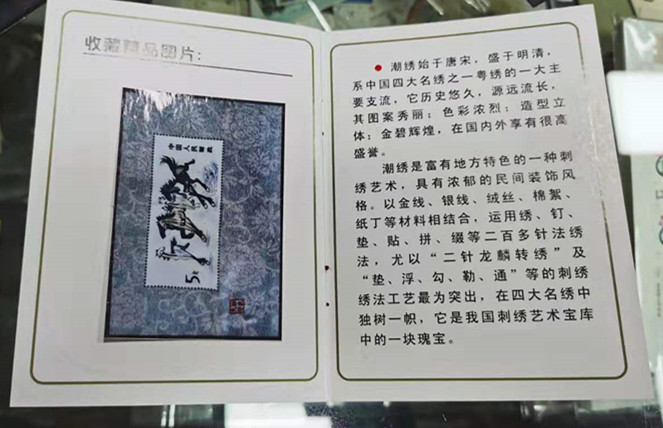 收藏藏品图片：
中国人民邮政
5
● 潮绣始于唐宋，盛于明清，
系中国四大名绣之一粤绣的一大主
要支流，它历史悠久，源远流长，
其图案秀丽；色彩浓烈；造型立
体；金碧辉煌，在国内外享有很高
盛誉。
潮绣是富有地方特色的一种刺
绣艺术，具有浓郁的民间装饰风
格。以金线、银线、绒丝、棉絮、
纸丁等材料相结合，运用绣、钉、
垫、贴、拼、缀等二百多针法绣
法，尤以“二针龙麟转绣”及
“垫、浮、勾、勒、通”等的刺绣
绣法工艺最为突出，在四大名绣中
独树一帜，它是我国刺绣艺术宝库
中的一块瑰宝。